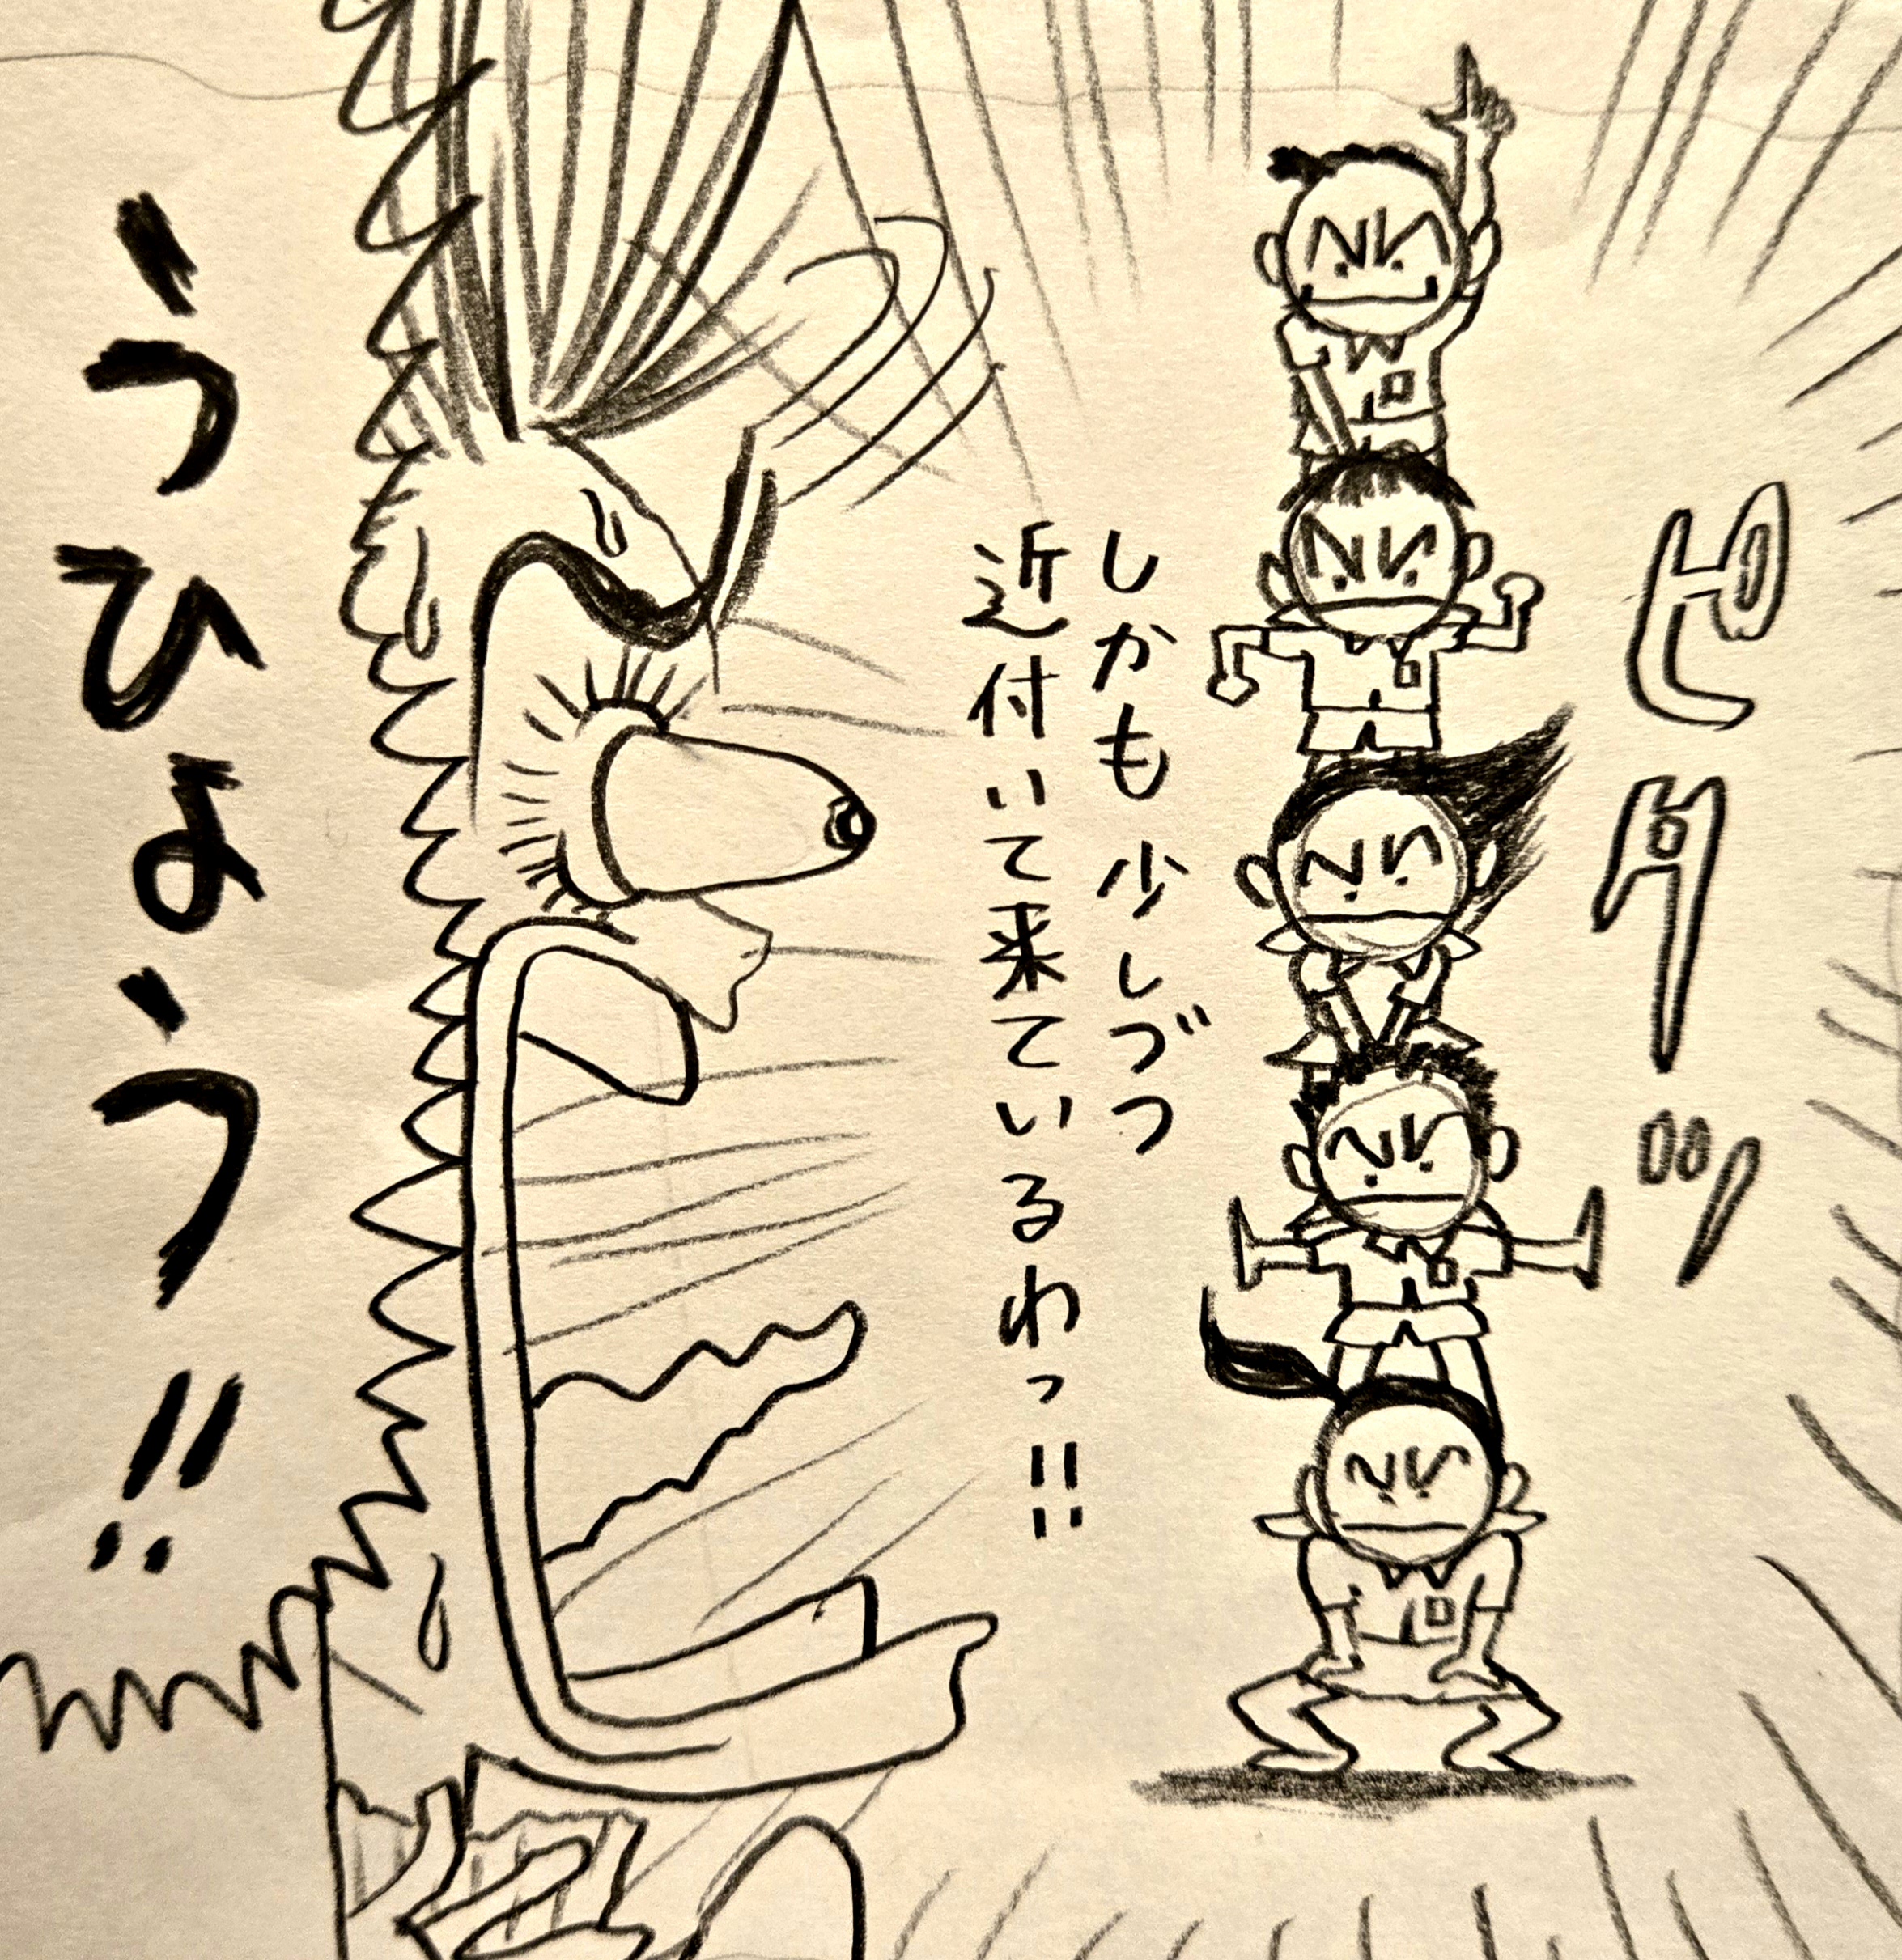 ピタッ
しかも少しづつ
近付いて来ているわっ!!
うひょう!!